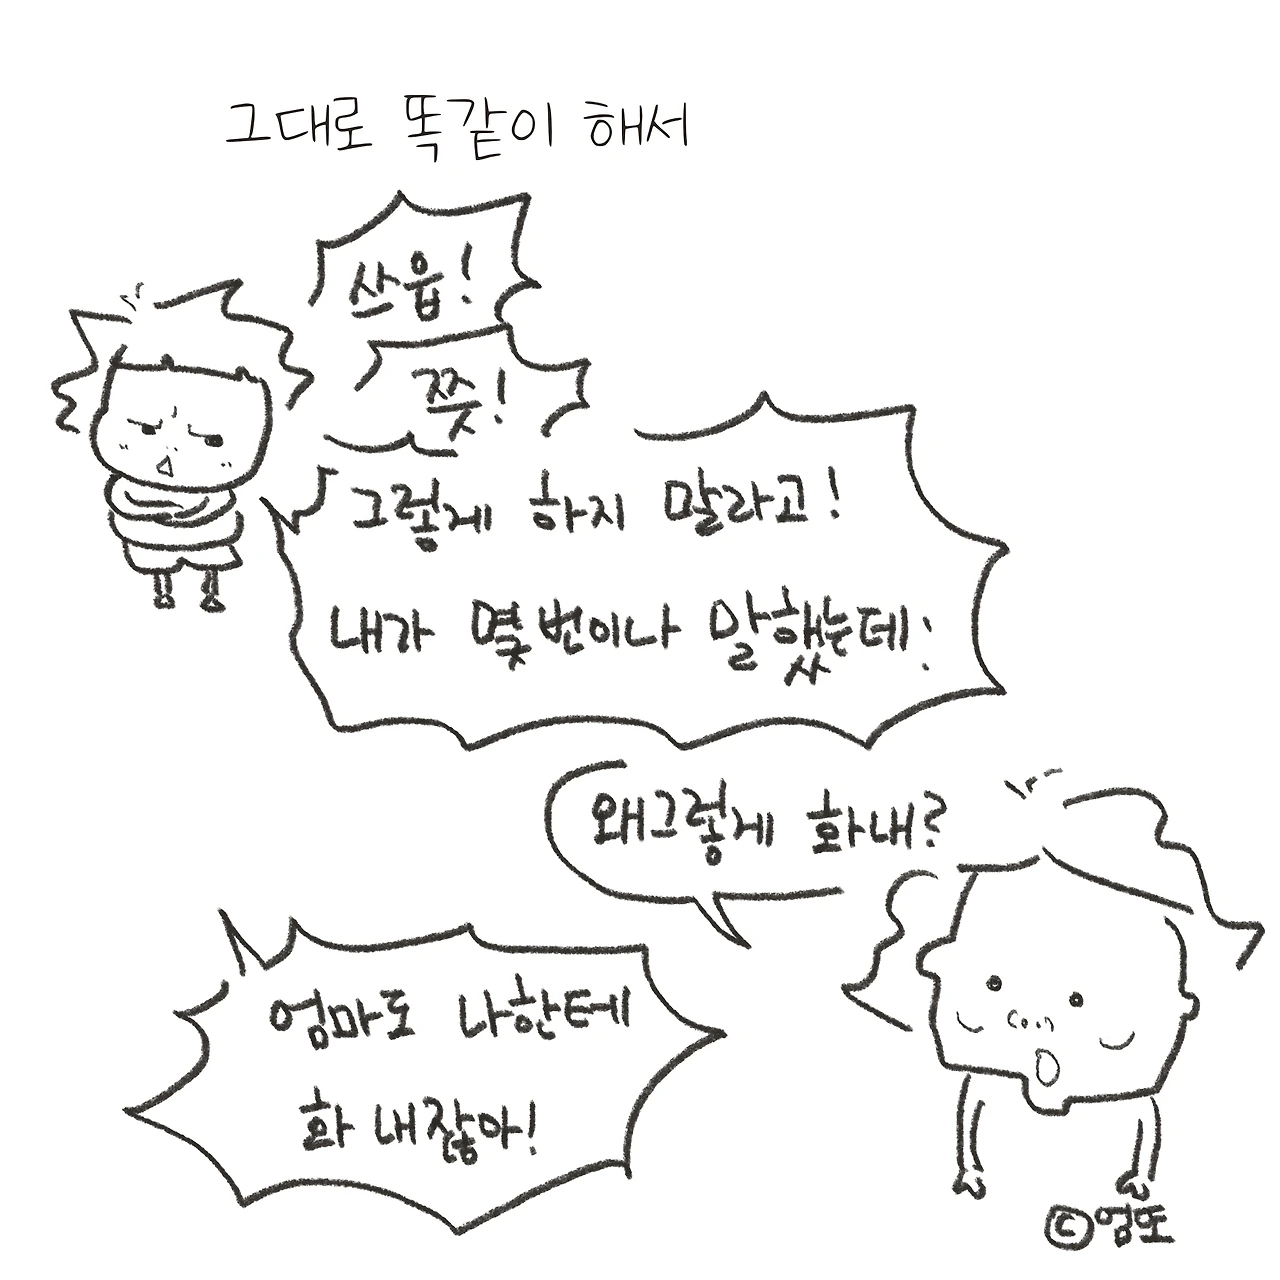 그대로 똑같이 해서
쓰읍!
쯧!
그렇게 하지 말라고!
내가 몇번이나 말했는데!
왜그렇게 화내?
엄마도 나한테
화 내잖아!
©엄또